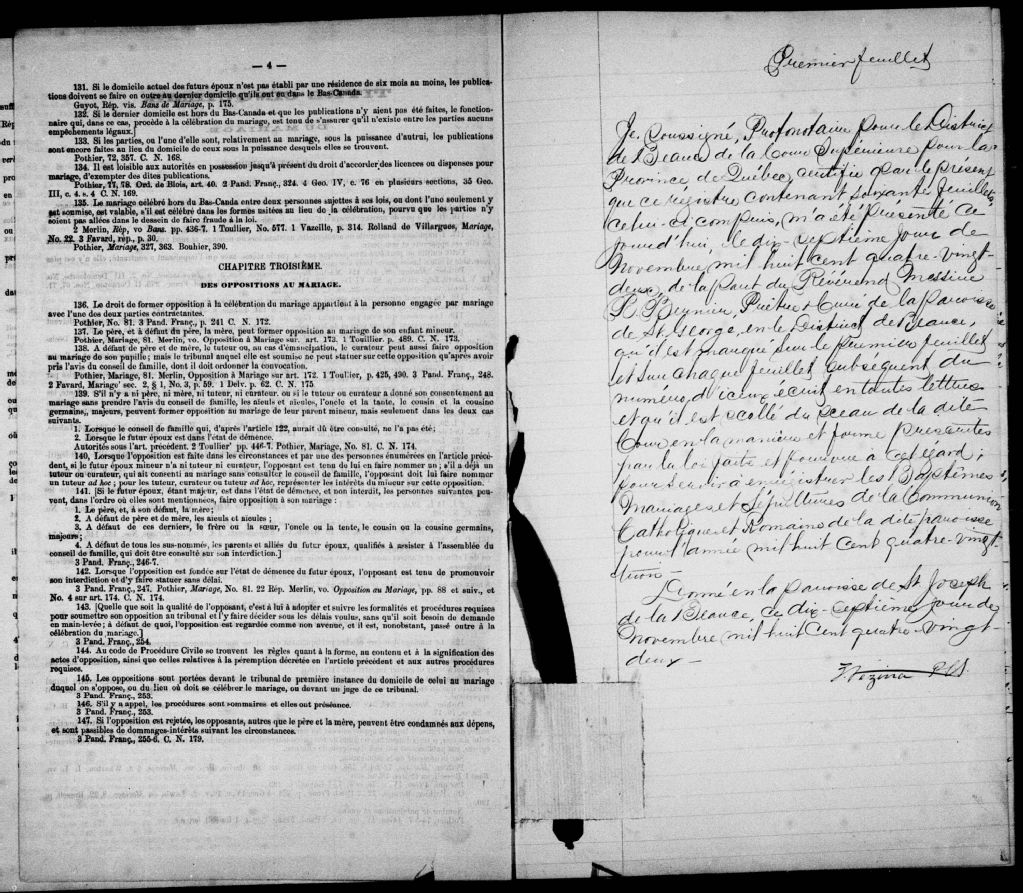 — 4 —
131. Si le domicile actuel des futurs époux n'est pas établi par une résidence de six mois au moins, les publica-
tions doivent se faire en outre au dernier domicile qu'ils ont eu dans le Bas-Canada.
Guyot, Rép. vis. Bans de Mariage, p. 175.
132. Si le dernier domicile est hors du Bas-Canada et que les publications n'y aient pas été faites, le fonction-
naire qui, dans ce cas, procède à la célébration du mariage, est tenu de s'assurer qu'il n'existe entre les parties aucuns
empêchements légaux.]
133. Si les parties, ou l'une d'elle sont, relativement au mariage, sous la puissance d'autrui, les publications
sont encore faites au lieu du domicile de ceux sous la puissance desquels elles se trouvent.
Pothier, 72, 357. C. N. 168.
134. Il est loisible aux autorités en possession jusqu'à présent du droit d'accorder des licences ou dispenses pour
mariage, d'exempter des dites publications.
Pothier, 77, 78. Ord. de Blois, art. 40. 2 Pand. Franç., 324. 4 Geo. IV, c. 76 en plusieurs sections, 35 Geo.
III, c. 4. s. 4 C. N. 169.
135. Le mariage célébré hors du Bas-Canda entre deux personnes sujettes à ses lois, ou dont l'une seulement y
est soumise, est valable, s'il est célébré dans les formes usitées au lieu de la célébration, pourvu que les parties n'y
soient pas allées dans le dessein de faire fraude à la loi.
2 Merlin, Rép, vo Bans. pp. 436-7. 1 Toullier, No. 577. 1 Vazeille, p. 314. Rolland de Villargues, Mariage,
No. 22. 3 Favard, rep., p. 30.
Pothier, Mariage, 327, 363. Bouhier, 390.
CHAPITRE TROISIÈME.
DES OPPOSITIONS AU MARIAGE.
136. Le droit de former opposition à la célébration du mariage appartient à la personne engagée par mariage
avec l'une des deux parties contractantes.
Pothier, No. 81. 3 Pand. Franç., p. 241 C. N. 172.
137. Le père, et à défaut du père, la mère, peut former opposition au mariage de son enfant mineur.
Pothier, Mariage, 81. Merlin, vo. Opposition à Mariage sur. art. 173. 1 Touillier. p. 489. C. N. 173.
138. A défaut de père et de mère, le tuteur ou, au cas d'émancipation, le curateur peut aussi faire opposition
au mariage de son pupille; mais le tribunal auquel elle est soumise ne peut statuer sur cette opposition qu'après avoir
pris l'avis du conseil de famille, dont il doit ordonner la convocation.
Pothier, Mariage, 81. Merlin, Opposition à Mariage sur art. 172. 1 Toullier, p. 425, 490. 3 Pand. Franç., 248.
2 Favard, Mariage' sec. 2. § 1, No. 3, p. 59. 1 Delv. p. 62. C. N. 175
139. S'il n'y a ni père, ni mère, ni tuteur, ni curateur. ou si le tuteur ou curateur a donné son consentement au
mariage sans prendre l'avis du conseil de famille, les aïeuls et aïeules, l'oncle et la tante, le cousin et la cousine
germains, majeurs, peuvent former opposition au mariage de leur parent mineur, mais seulement dans les deux cas
suivants.
1. Lorsque le conseil de famille qui, d'après l'article 122, aurait dû être consulté, ne l'a pas été;
2. Lorsque le futur époux est dans l'état de démence.
Autorités sous l'art. précédent. 2 Toullier' pp. 446-7. Pothier, Mariage, No. 81. C. N. 174.
140, Lorsque l'opposition est faite dans les circonstances et par une des personnes énumérées en l'article précé-
dent, si le futur époux mineur n'a ni tuteur ni curateur, l'opposant est tenu de lui en faire nommer un; s'il a déjà un
tuteur ou curateur, qui ait consenti au mariage sans consulter le conseil de famille, l'opposant doit lui faire nommer
un tuteur ad hoc; pour les tuteur, curateur ou tuteur ad hoc, représenter les intérêts du mineur sur cette opposition.
141. [Si le futur époux, étant majeur, est dans l'état de démence, et non interdit, les personnes suivantes peu-
vent, dans l'ordre où elles sont mentionnées, faire opposition à son mariage:
1. Le père, et, à son défaut, la mère;
2. A défaut de père et de mère, les aïeuls et aïeules;
3. A défaut de ces derniers, le frère ou la sœur, l'oncle ou la tante, le cousin ou la cousine germains,
majeurs;
4. A défaut de tous les sus-nommés, les parents et alliés du futur époux, qualifiés à assister à l'assemblée du
conseil de famille, qui doit être consulté sur son interdiction.]
3 Pand. Franç., 246-7.
142. Lorsque l'opposition est fondée sur l'état de démence du futur époux, l'opposant est tenu de promouvoir
son interdiction et d'y faire statuer sans délai.
3 Pand. Franç., 247. Pothier, Mariage, No. 81. 22 Rép. Merlin, vo. Opposition au Mariage, pp. 88 et suiv., et
No. 4 sur art. 174. C. N. 174.
143. [Quelle que soit la qualité de l'opposant, c'est à lui à adopter et suivre les formalités et procédures requises
pour soumettre son opposition au tribunal et l'y faire décider sous les délais voulus, sans qu'il soit besoin de demande
en main-levée; à défaut de quoi, l'opposition est regardée comme non avenue, et il est, nonobstant, passé outre à la
célébration du mariage.]
3 Pand. Franç., 254.
144. Au code de Procédure Civile se trouvent les règles quant à la forme, au contenu et à la signification des
actes d'opposition, ainsi que celles relatives à la péremption décrétée en l'article précédent et aux autres procédures
requises.
145. Les oppositions sont portées devant le tribunal de première instance du domicile de celui au mariage
duquel on s'oppose, ou du lieu où doit se célébrer le mariage, ou devant un juge de ce tribunal.
3 Pand. Franç., 253.
146. S'il y a appel, les procédures sont sommaires et elles ont préséance.
3 Pand. Franç., 253.
147. Si l'opposition est rejetée, les opposants, autres que le père et la mère, peuvent être condamnés aux dépens,
et sont passibles de dommages-intérêts suivant les circonstances.
3 Pand. Franç., 255-6. C. N. 179.
Premier feuillet
Je, Soussigné, Protonotaire pour le District
de Beauce de la Cour Supérieure pour la
Province de Québec, certifie par le présent
que ce régistre contenant soixante feuillets,
celui-ci compris, m'a été présenté ce
jourd'hui, le dix-septième jour de
Novembre mil huit cent quatre-vingt-
deux, de la part du Révérend Messire
Prêtre & Curé de la paroisse
de St. George, en le District de Beauce,
qu'il est marqué sur le premier feuillet
et sur chaque feuillet subséquent du
numéro d'iceux écrit en toutes lettres
et qu'il est scellé du sceau de la dite
Cour en la manière et forme prescrites
par la loi faite et pourvue à cet égard;
pour servir à enrégistrer les Baptêmes
Mariages et Sépultures de la Communion
Catholique et Romaine de la dite paroisse
pour l'année mil huit cent quatre-vingt-
trois.
Donné en la paroisse de St Joseph
de la Beauce, ce dix-septième jour de
Novembre mil huit cent quatre-vingt-
deux —
Vézina P.C.S.